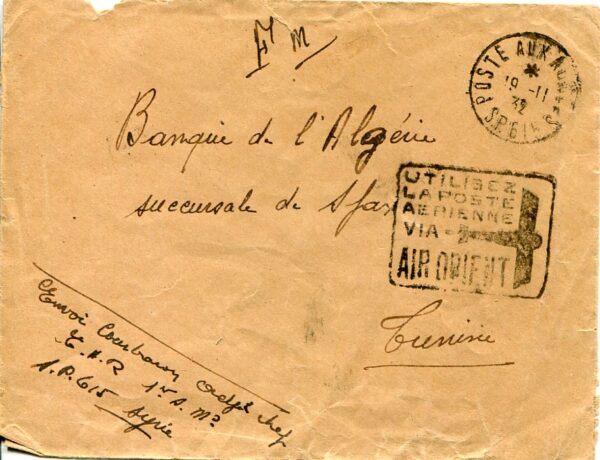 FM
POSTE AUX ARMÉES
*
19 -11
32
S.P.615
Banque de l'Algérie
succursale de Sfax
UTILISEZ
LA POSTE
AERIENNE
VIA -
AIR ORIENT
Tunisie
Envoi Courbaron Adjt chef
S.P.615 Syrie